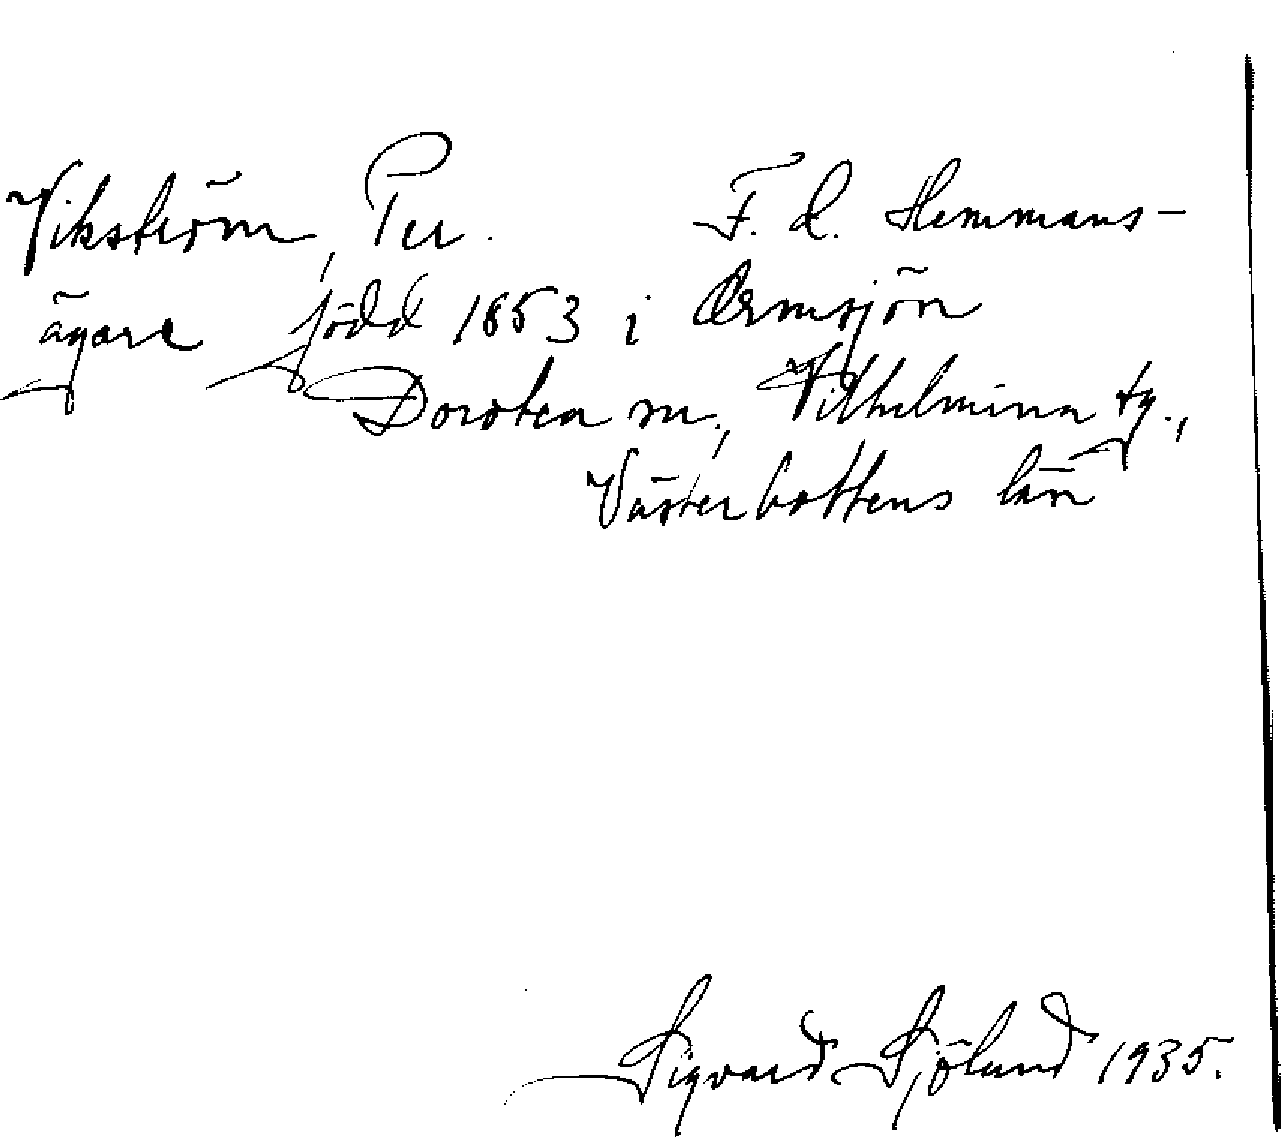 Vikström, Per. F. d. Hemmans-
ägare född 1853 i Ormsjön
Dorotea sn., Vilhelmina tg.,
Västerbottens län
Sigvard Sjölund 1935.